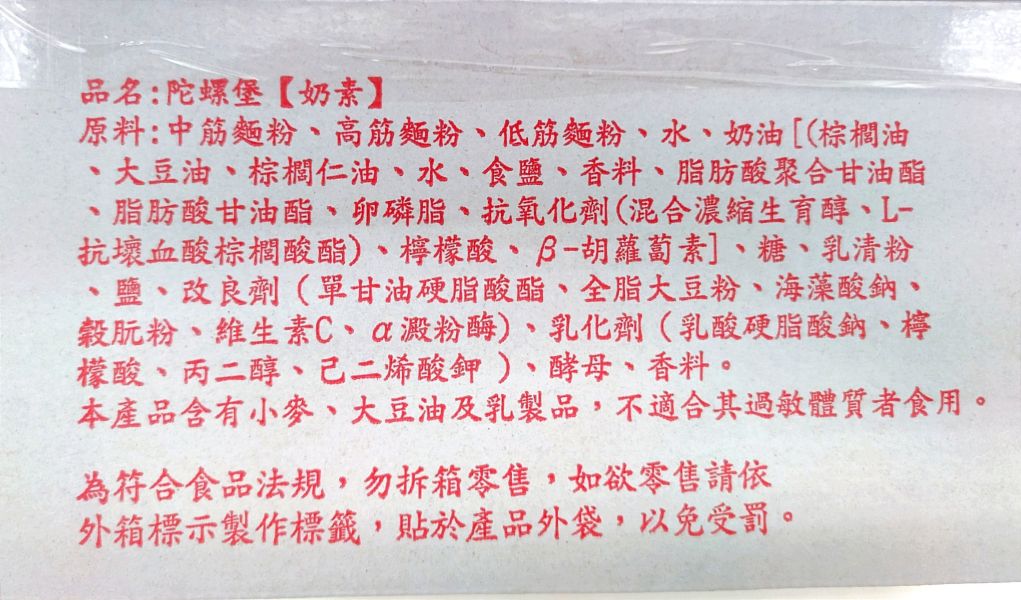 品名:陀螺堡【奶素】
原料:中筋麵粉、高筋麵粉、低筋麵粉、水、奶油[(棕櫚油
、大豆油、棕櫚仁油、水、食鹽、香料、脂肪酸聚合甘油酯
、脂肪酸甘油酯、卵磷脂、抗氧化劑(混合濃縮生育醇、L-
抗壞血酸棕櫚酸酯)、檸檬酸、β-胡蘿蔔素]、糖、乳清粉
、鹽、改良劑(單甘油硬脂酸酯、全脂大豆粉、海藻酸鈉、
穀朊粉、維生素C、α澱粉酶)、乳化劑(乳酸硬脂酸鈉、檸
檬酸、丙二醇、己二烯酸鉀)、酵母、香料。
本產品含有小麥、大豆油及乳製品,不適合其過敏體質者食用。
為符合食品法規,勿拆箱零售,如欲零售請依
外箱標示製作標籤,貼於產品外袋,以免受罰。